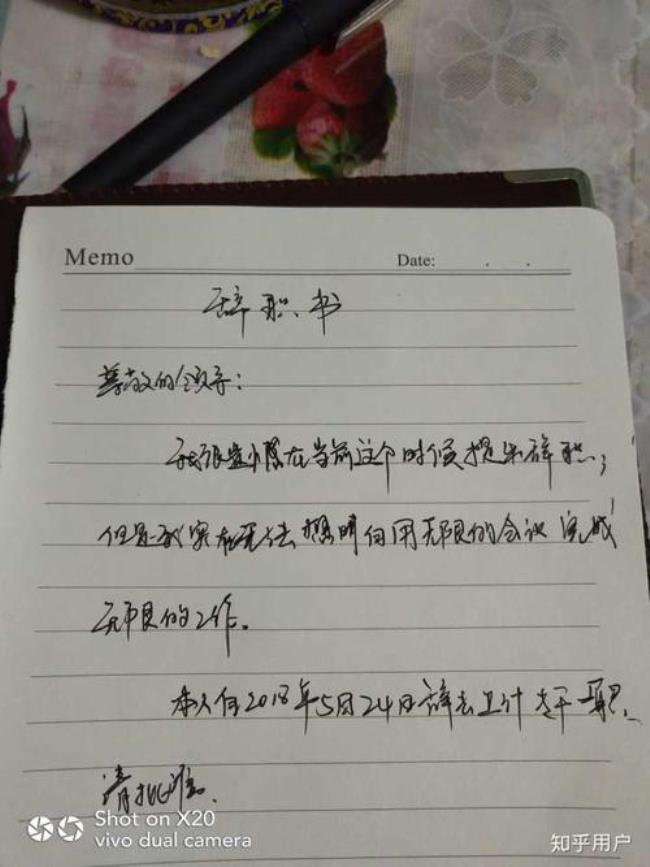 Memo
Date: . .
辞职书
尊敬的领导:
我很遗憾在当前这个时候提出辞职,
但是我实在无法想明白用无限的会议完成
无限的工作。
本人自2018年5月24日辞去卫计专干一职、
请批准.
Shot on X20
vivo dual camera
知乎用户